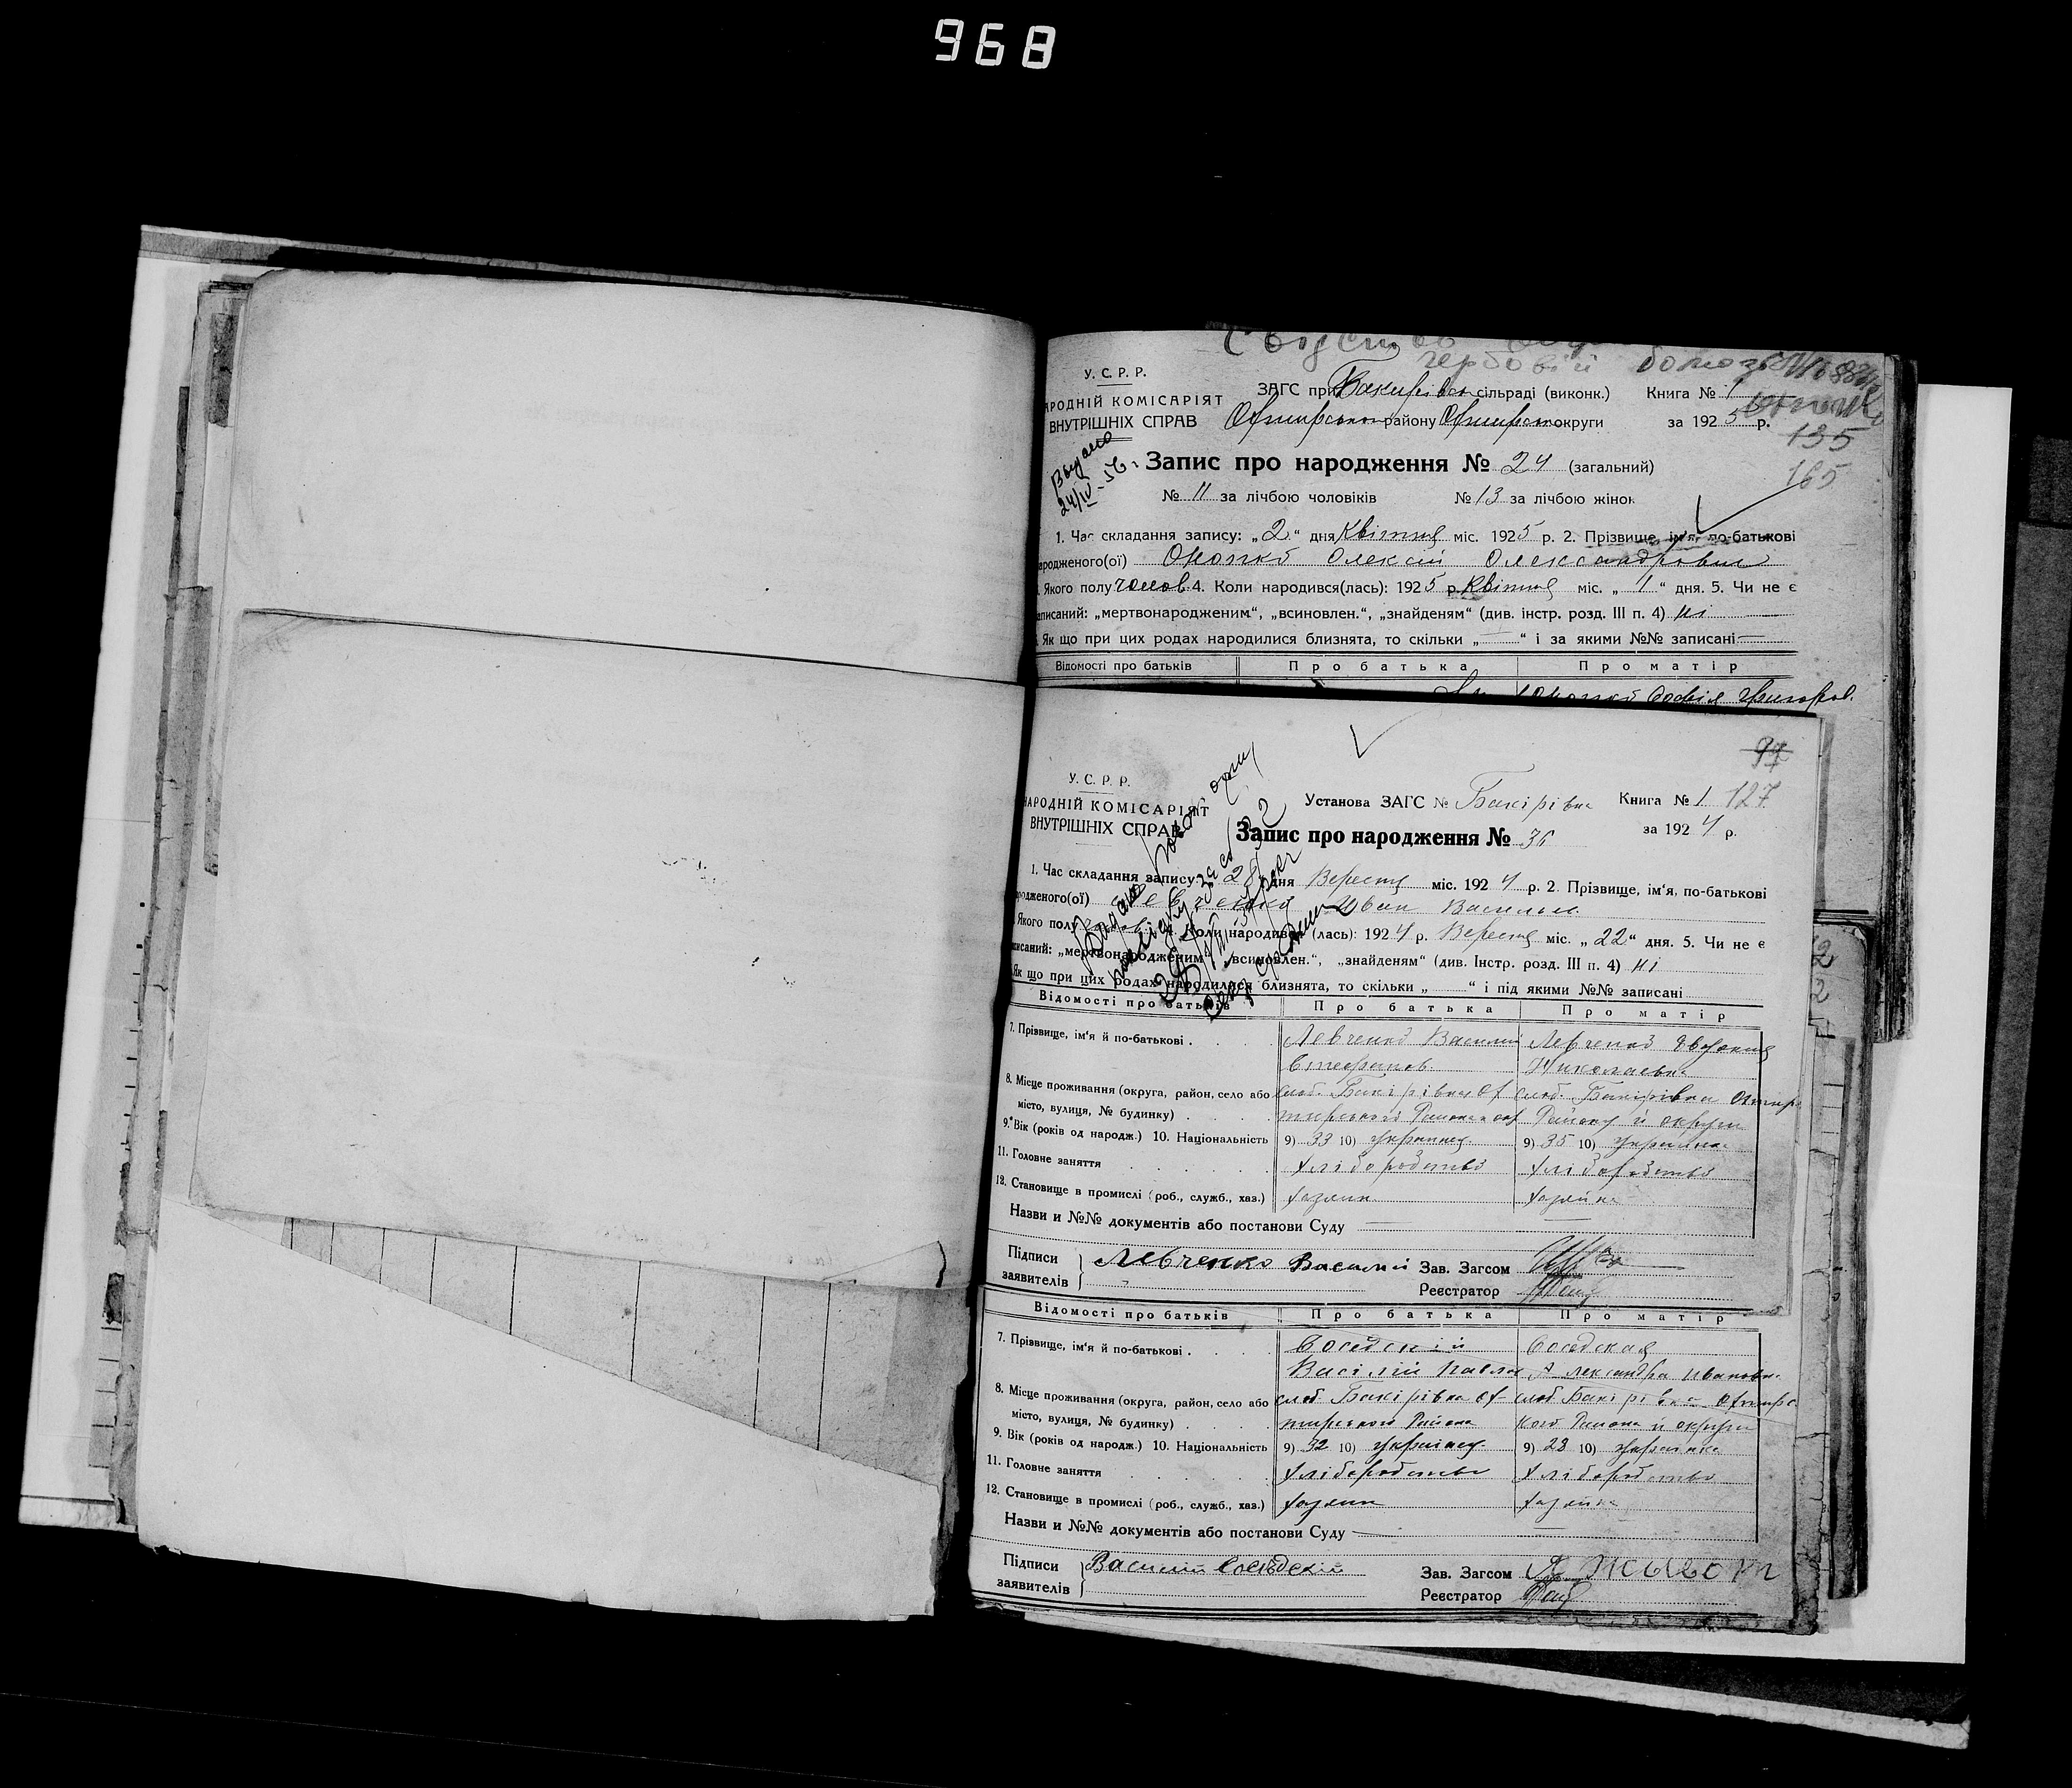 968
У. С. Р. Р.
АРОДНІЙ КОМІСАРІЯТ
ВНУТРІШНІХ СПРАВ
ЗАГС при Бакирівсь сільраді (виконк.) Книга № 1
району округи за 1925 р.
135
165
Видано
24/IV-56.
Запис про народження № 24 (загальний)
№ 11 за лічбою чоловіків № 13 за лічбою жінок
1. Час складання запису: „2“ дня Квітня міс. 1925 р. 2. Прізвище, ім'я, по-батькові
ародженого(ої) Олексій Олександрович
Якого полу чолов. 4. Коли народився(лась): 1925 р. Квітня міс. „1“ дня. 5. Чи не є
аписаний: „мертвонародженим“, „всиновлен.“, „знайденям“ (див. інстр. розд. III п. 4) ні
Як що при цих родах народилися близнята, то скільки „—“ і за якими №№ записані —
Відомості про батьків Про батька Про матір
97
У. С. Р. Р.
НАРОДНІЙ КОМІСАРІЯТ
ВНУТРІШНІХ СПРАВ
Установа ЗАГС № Бакірівка Книга № 1 127
Запис про народження № 36 за 1924 р.
1. Час складання запису: „28“ дня Вересня міс. 1924 р. 2. Прізвище, ім'я, по-батькові
родженого(ої) Левченко Иван Васильев.
Якого полу 4. Коли народився (лась): 1924 р. Вересня міс. „22“ дня. 5. Чи не є
писаний: „мертвонародженим“, „всиновлен.“, „знайденям“ (див. Інстр. розд. III п. 4) ні
Як що при цих родах народилися близнята, то скільки „ “ і під якими №№ записані
Відомості про батьків Про батька Про матір
7. Прізвище, ім'я й по-батькові . Левченко Василий Левченко Евдокия
Стефанов. Николаевна
8. Місце проживання (округа, район, село або слоб. Бакірівка Ох слоб. Бакірівка Охтир
місто, вулиця, № будинку) . тирського Района Району й округи
9. Вік (років од народж.) 10. Національність 9) 33 10) українец. 9) 35 10) українка
11. Головне заняття Хліборобство Хліборобство
12. Становище в промислі (роб., служб., хаз.) Хазяин Хазяйка
Назви и №№ документів або постанови Суду —
Підписи заявителів Левченко Василий Зав. Загсом
Реєстратор
Відомості про батьків Про батька Про матір
7. Прізвище, ім'я й по-батькові . Соседский Соседская
Васілий Павлов Александра Ивановна
8. Місце проживання (округа, район, село або слоб. Бакірівка Ох слоб Бакірівка Охтирс
місто, вулиця, № будинку) . тирского Района кого Района й округи
9. Вік (років од народж.) 10. Національність 9) 32 10) українец. 9) 28 10) українка
11. Головне заняття Хліборобство Хліборобство
12. Становище в промислі (роб., служб., хаз.) Хазяин Хазяйка
Назви и №№ документів або постанови Суду —
Підписи заявителів Василий Соседский Зав. Загсом
Реєстратор